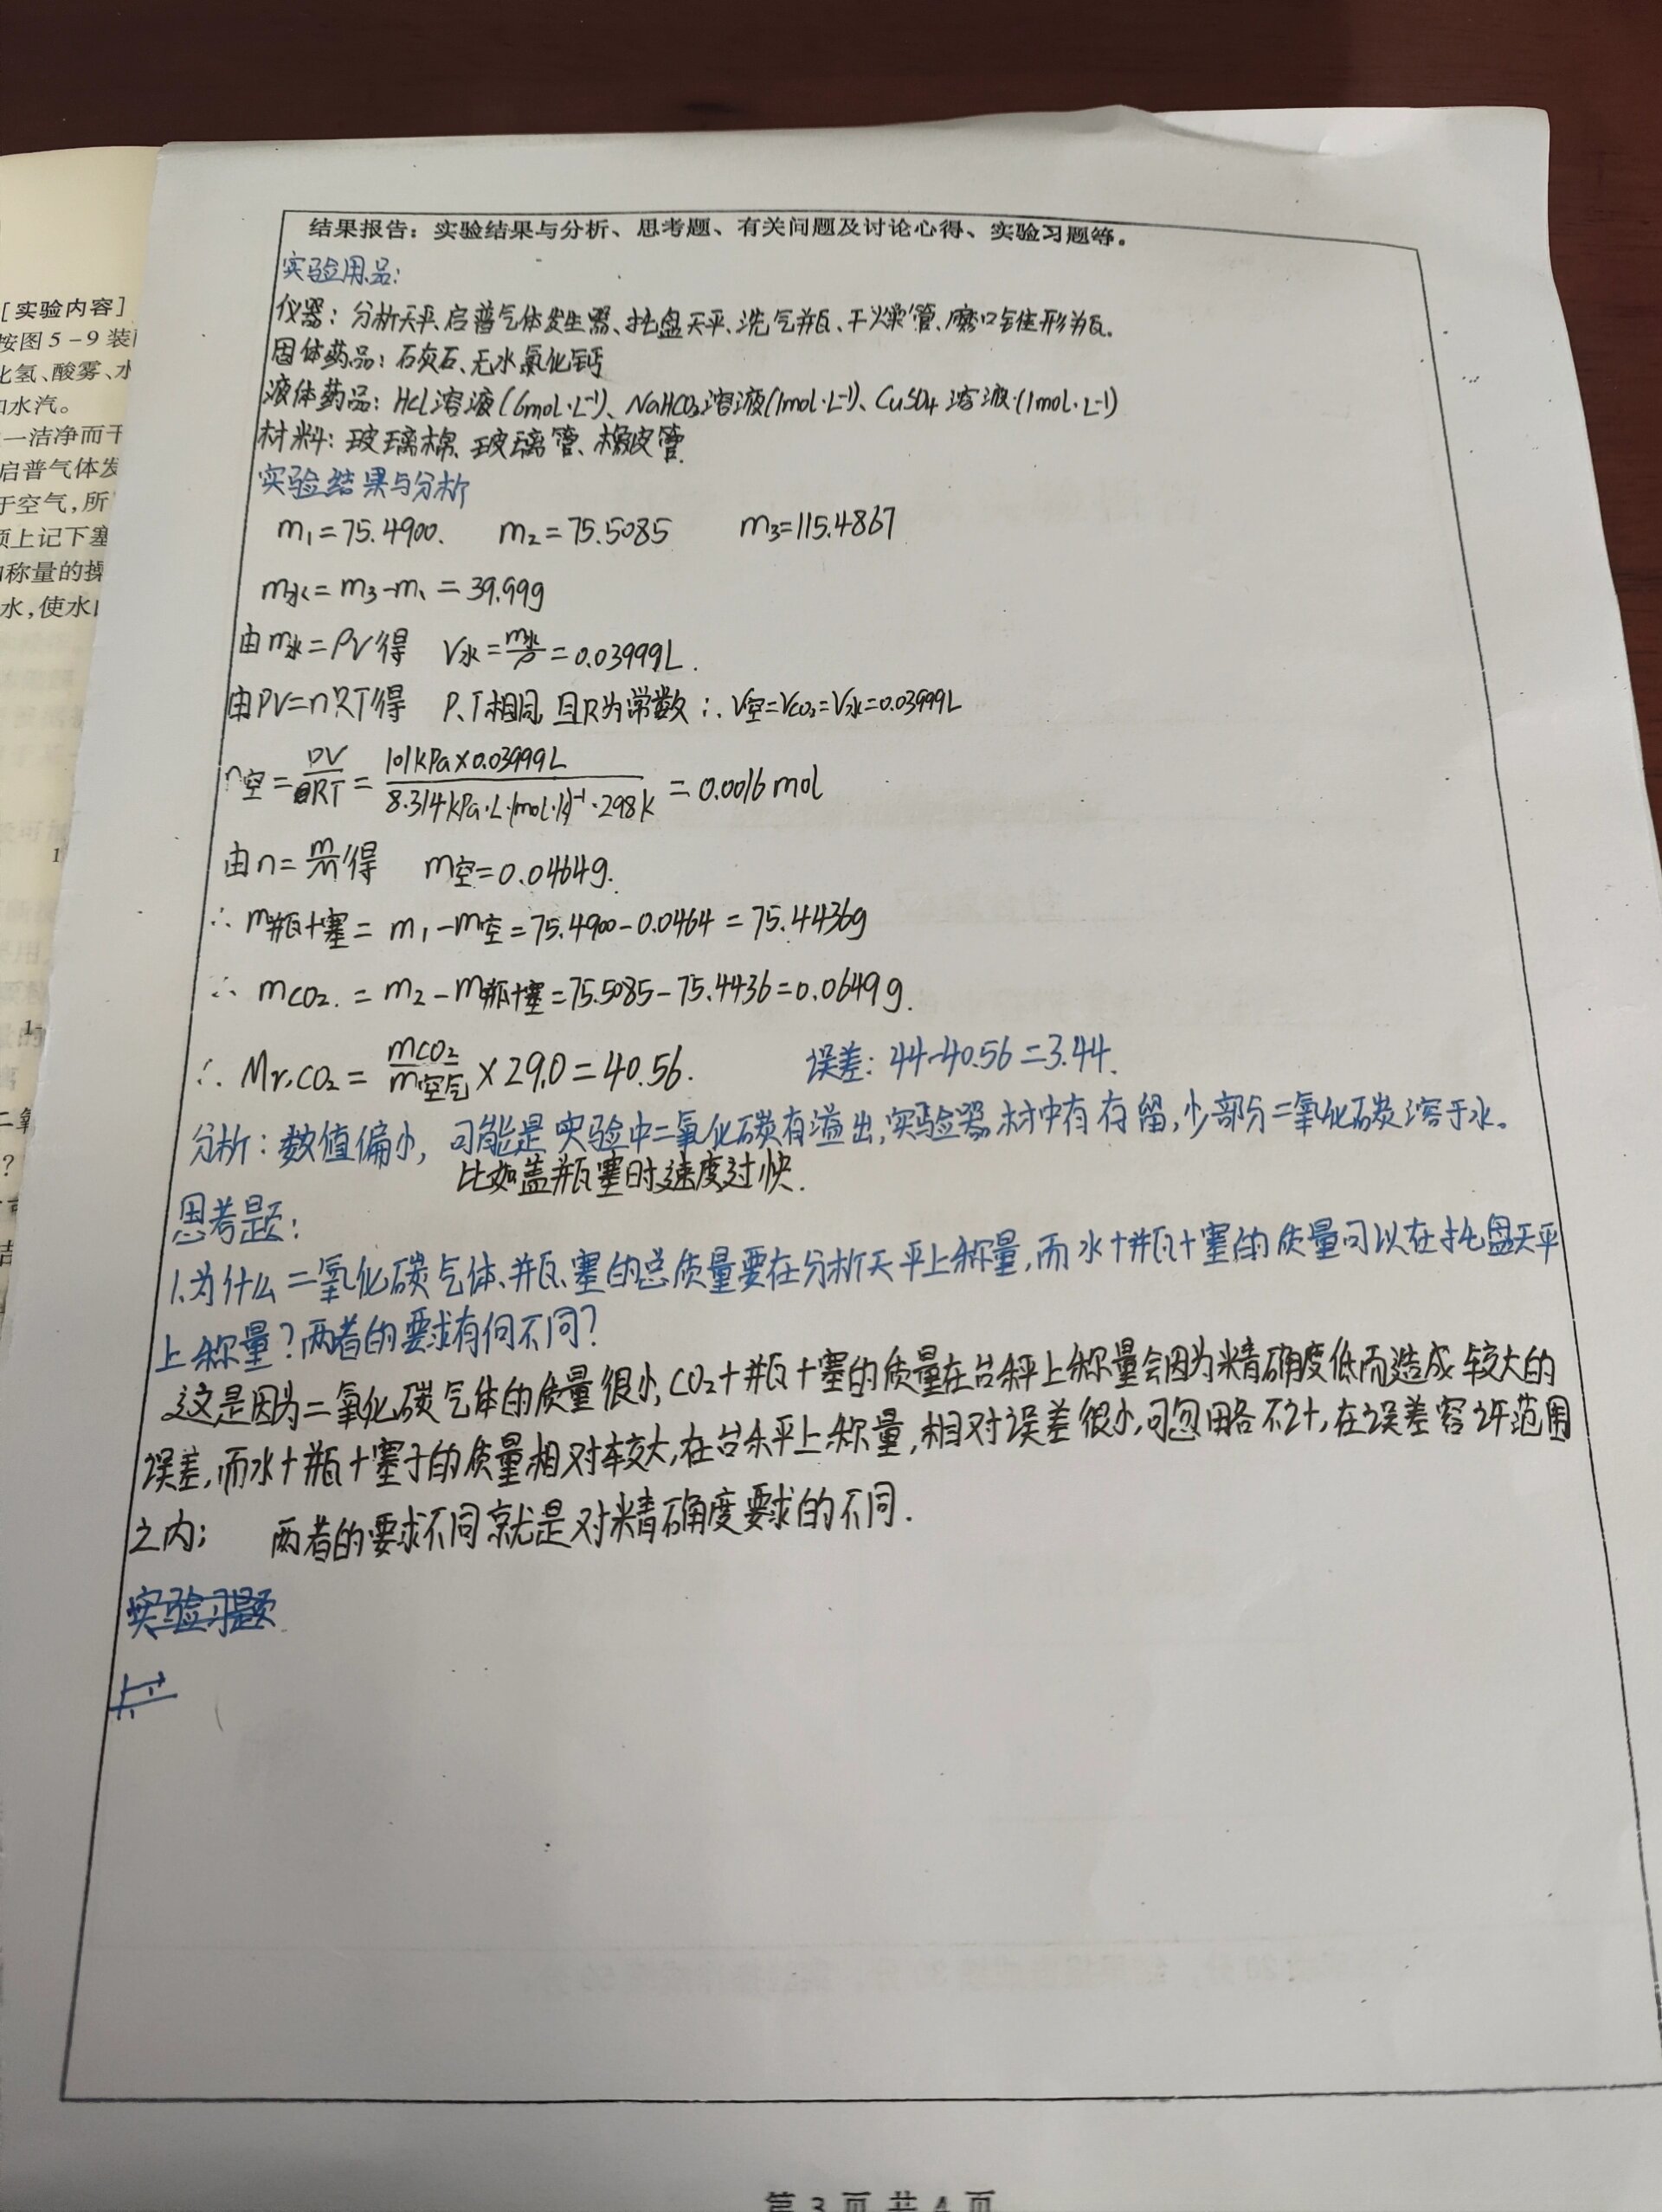 结果报告：实验结果与分析、思考题、有关问题及讨论心得、实验习题等。
实验用品：
仪器：分析天平、启普气体发生器、托盘天平、洗气瓶、干燥管、磨口锥形瓶。
固体药品：石灰石、无水氯化钙
液体药品：HCl溶液(6mol·L⁻¹)、NaHCO₃溶液(1mol·L⁻¹)、CuSO₄溶液(1mol·L⁻¹)
材料：玻璃棉、玻璃管、橡皮管.
实验结果与分析
m₁=75.4900. m₂=75.5085 m₃=115.4867
m水=m₃-m₁=39.99g
由m水=ρV得 V水=m水/ρ=0.03999L.
由PV=nRT得 P、T相同,且R为常数 ∴V空=Vco₂=V水=0.03999L
n空=PV/RT=101kPa×0.03999L/8.314kPa·L·(mol·k)⁻¹·298k=0.0016mol
由n=m/M得 m空=0.0464g.
∴m瓶+塞=m₁-m空=75.4900-0.0464=75.4436g
∴mCO₂.=m₂-m瓶+塞=75.5085-75.4436=0.0649g.
∴Mr,CO₂=mCO₂/m空气×29.0=40.56. 误差：44-40.56=3.44.
分析：数值偏小,可能是实验中二氧化碳有溢出,实验器材中有存留,少部分二氧化碳溶于水。
比如盖瓶塞时速度过快.
思考题：
1.为什么二氧化碳气体、瓶、塞的总质量要在分析天平上称量,而水+瓶+塞的质量可以在托盘天平
上称量？两者的要求有何不同？
这是因为二氧化碳气体的质量很小,CO₂+瓶+塞的质量在台秤上称量会因为精确度低而造成较大的
误差,而水+瓶+塞子的质量相对较大,在台秤上称量,相对误差很小,可忽略不计,在误差容许范围
之内; 两者的要求不同就是对精确度要求的不同.
实验习题
[实验内容]
按图5-9装
化氢、酸雾、水
和水汽。
一洁净而干
启普气体发
于空气,所
上记下塞
称量的操
水,使水
第 3 页 共 4 页